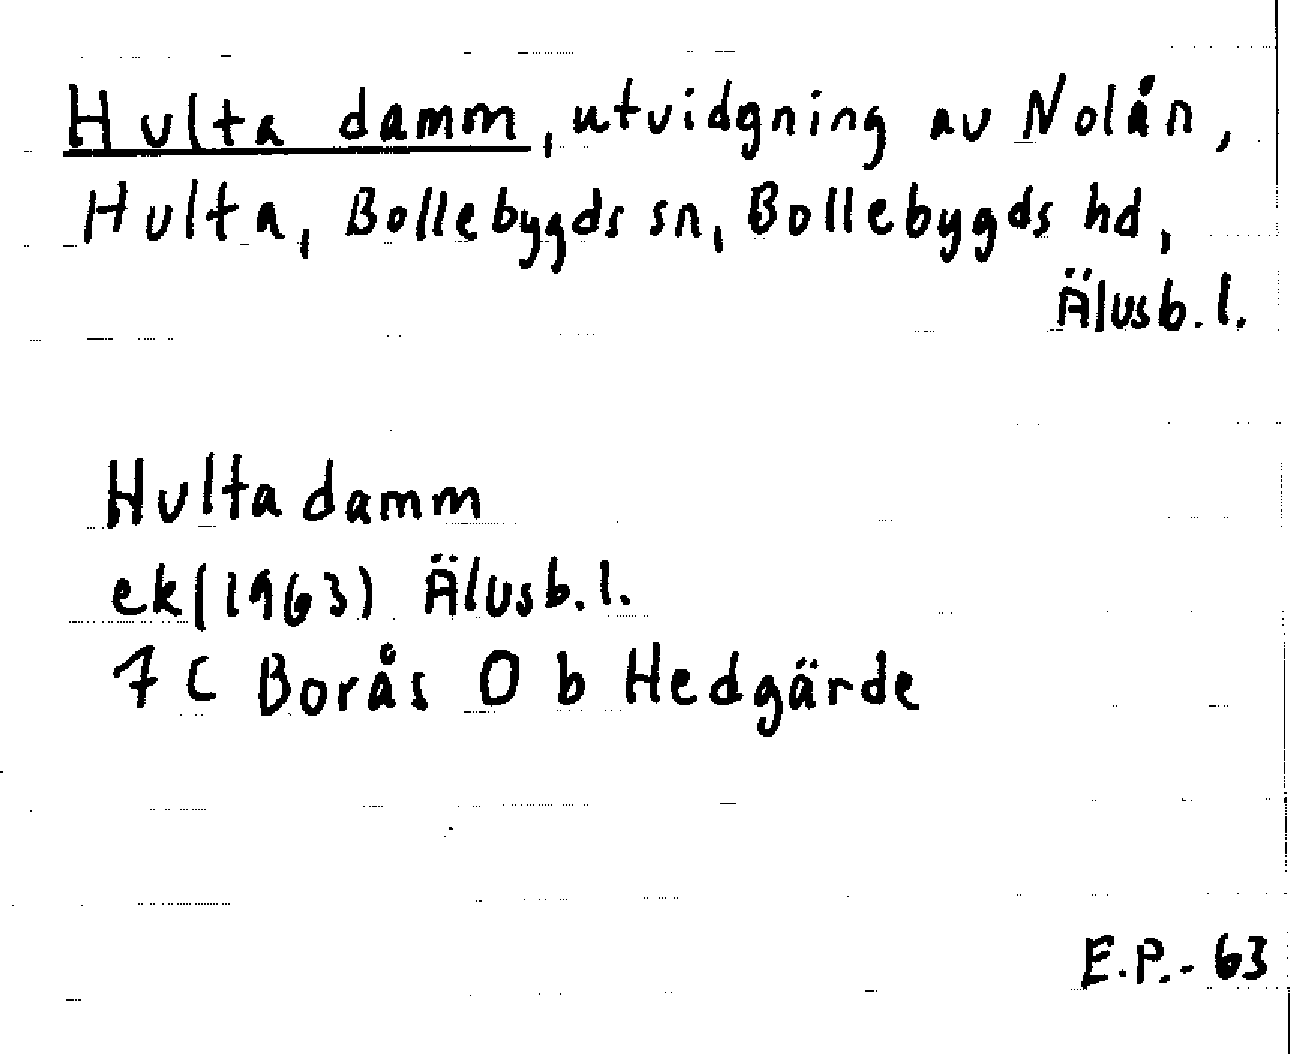 Hulta damm, utvidgning av Nolån,
Hulta, Bollebygds sn, Bollebygds hd,
Älvsb. l.
Hulta damm
ek (1963) Älvsb. l.
7 C Borås O b Hedgärde
E.P.- 63